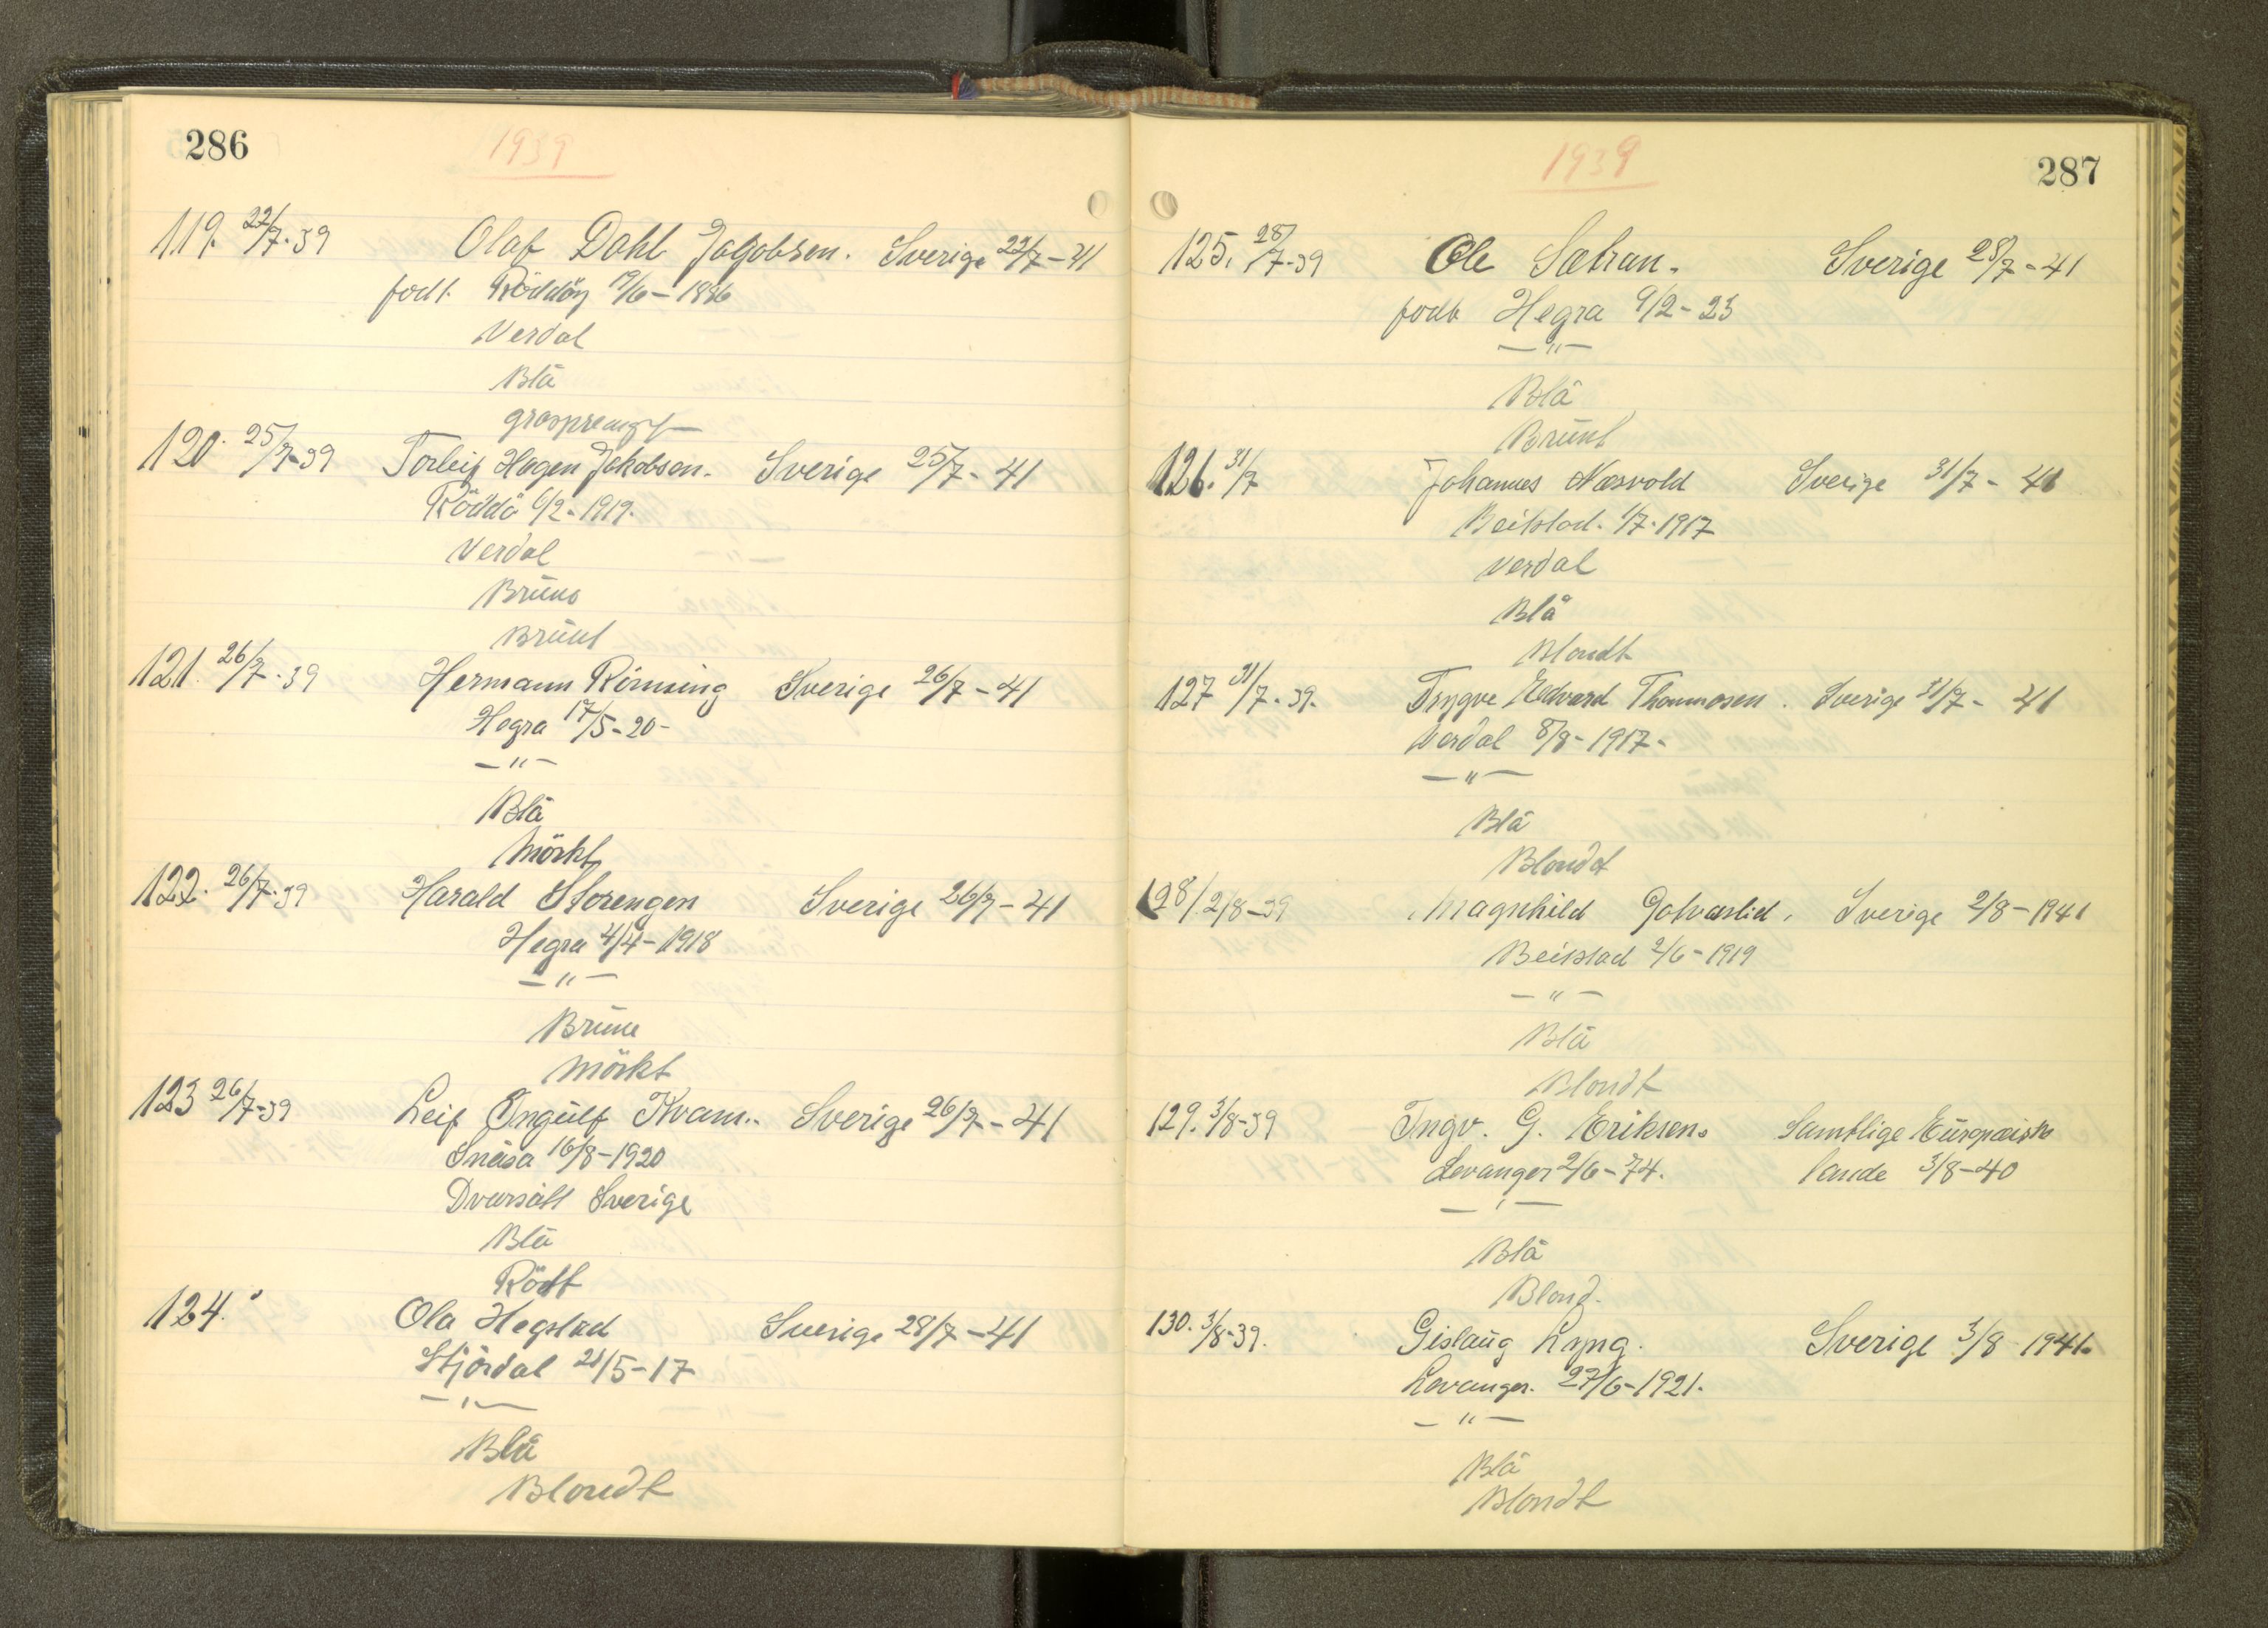 286
1939
119. 22/7-39 Olaf Dahl Jakobsen. Sverige 22/7-41
født Röddöy 19/6-1886
Verdal
Blå
gråsprengt
120. 25/7-39 Torleif Hagen Jakobsen. Sverige 25/7-41
Röddö 6/2-1919.
Verdal
Brune
Brunt
121. 26/7-39 Hermann Rimsing Sverige 26/7-41
Hegra 17/5-20-
-"-
Blå
Mörkt
122. 26/7-39 Harald Storengen Sverige 26/7-41
Hegra 4/4-1918
-"-
Brune
Mörkt
123 26/7-39 Leif Ingulf Kvam.. Sverige 26/7-41
Snåsa 16/8-1920
Dvärsätt Sverige
Blå
Rödt
124." Ola Hegstad Sverige 28/7-41
Stjördal 21/5-17
-"-
Blå
Blondt
1939
287
125. 28/7-39 Ole Sætran. Sverige 28/7-41
født Hegra 9/2-23
-"-
Blå
Brunt
126. 31/7 Johannes Næsvold Sverige 31/7-41
Beitstad. 1/7-1917
Verdal
Blå
Blondt
127 31/7-39. Trygve Edvard Thommosen. Sverige 31/7-41
Verdal 8/8-1917-
-"-
Blå
Blondt
128/ 2/8-39 Magnhild Gotvaslid. Sverige 2/8-1941
Beitstad 2/6-1919
-"-
Blå
Blondt
129. 3/8-39 Ingv. G. Eriksen. Samtlige Europæiske
Levanger 2/6-74. lande 3/8-40
-"-
Blå
Blond.
130. 3/8-39. Gislaug Lyng. Sverige 3/8-1941.
Levanger. 27/6-1921.
-"-
Blå
Blondt